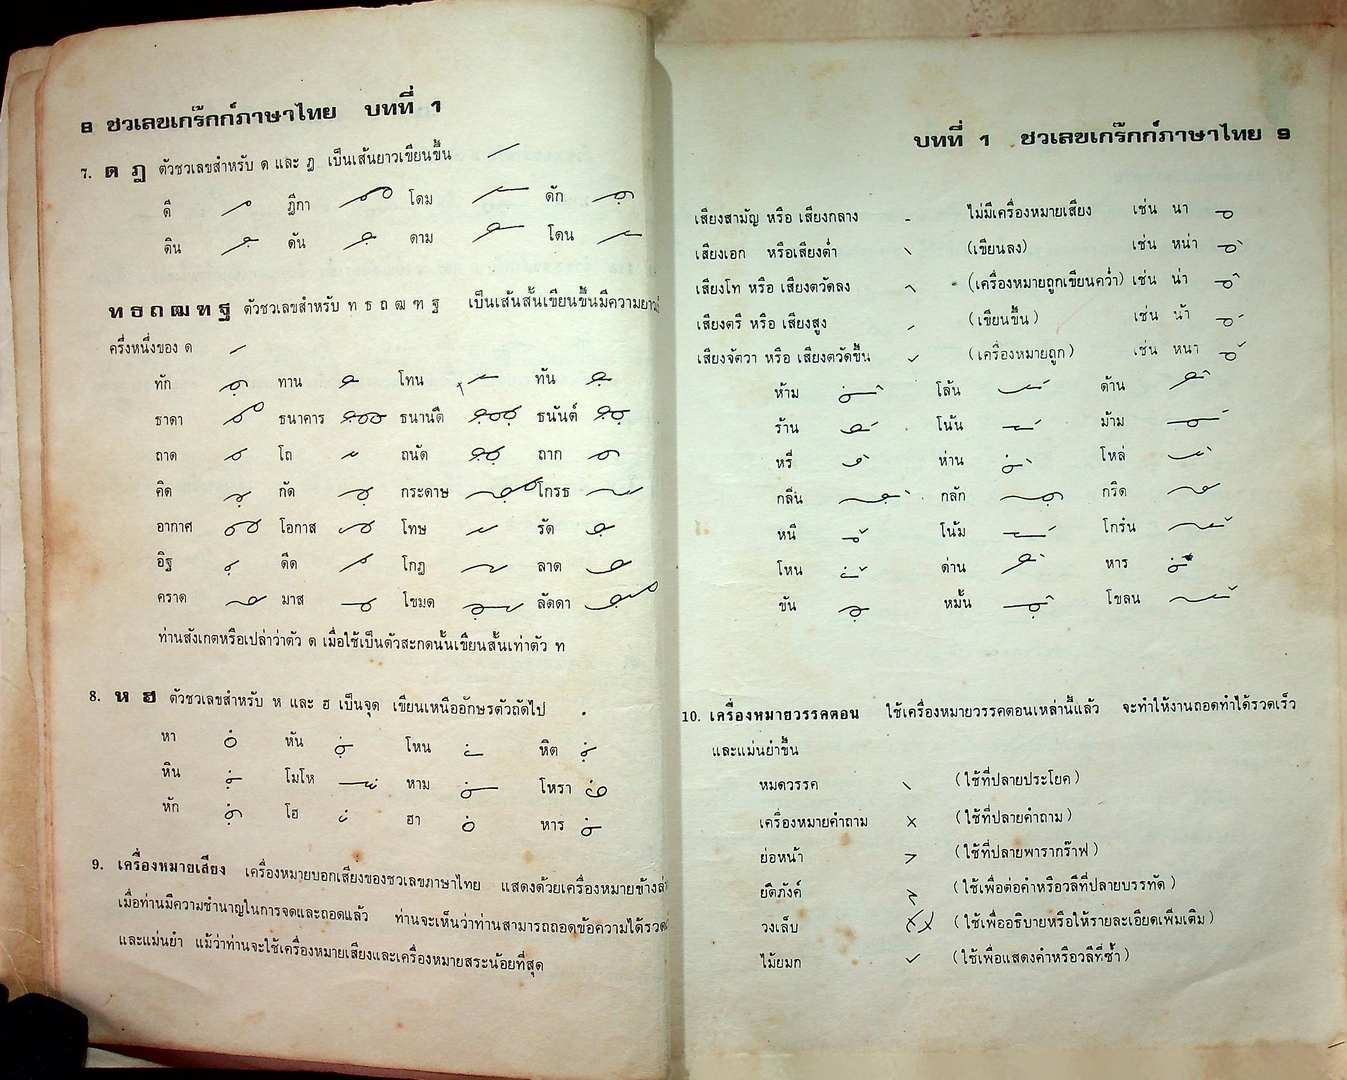 8 ชวเลขเกร๊กก์ภาษาไทย บทที่ 1
7. ด ฎ ตัวชวเลขสำหรับ ด และ ฎ เป็นเส้นยาวเขียนขึ้น
ดี ฎีกา โดม ดัก
ดิน ดัน ดาม โดน
ท ธ ถ ฒ ฑ ฐ ตัวชวเลขสำหรับ ท ธ ถ ฒ ฑ ฐ เป็นเส้นสั้นเขียนขึ้นมีความยาว
ครึ่งหนึ่งของ ด
ทัก ทาน โทน ทัน
ธาดา ธนาคาร ธนานัติ ธนันต์
ถาด โถ ถนัด ถาก
คิด กัด กระดาษ โกรธ
อากาศ โอกาส โทษ รัด
อิฐ ดีด โกฎ ลาด
คราด มาส โขมด ลัดดา
ท่านสังเกตหรือเปล่าว่าตัว ด เมื่อใช้เป็นตัวสะกดนั้นเขียนสั้นเท่าตัว ท
8. ห ฮ ตัวชวเลขสำหรับ ห และ ฮ เป็นจุด เขียนเหนืออักษรตัวถัดไป .
หา หัน โหน หิต
หิน โมโห หาม โหรา
หัก โฮ ฮา หาร
9. เครื่องหมายเสียง เครื่องหมายบอกเสียงของชวเลขภาษาไทย แสดงด้วยเครื่องหมายข้างล่า
เมื่อท่านมีความชำนาญในการจดและถอดแล้ว ท่านจะเห็นว่าท่านสามารถถอดข้อความได้รวด
และแม่นยำ แม้ว่าท่านจะใช้เครื่องหมายเสียงและเครื่องหมายสระน้อยที่สุด
บทที่ 1 ชวเลขเกร๊กก์ภาษาไทย 9
เสียงสามัญ หรือ เสียงกลาง - ไม่มีเครื่องหมายเสียง เช่น นา
เสียงเอก หรือเสียงต่ำ (เขียนลง) เช่น หน่า
เสียงโท หรือ เสียงตวัดลง (เครื่องหมายถูกเขียนคว่ำ) เช่น น่า
เสียงตรี หรือ เสียงสูง (เขียนขึ้น) เช่น น้า
เสียงจัตวา หรือ เสียงตวัดขึ้น (เครื่องหมายถูก) เช่น หนา
ห้าม โล้น ด้าน
ร้าน โน้น ม้าม
หรี่ ห่าน โหล่
กลื่น กลัก กริด
หนี โน้ม โกร๋น
โหน ด่าน หาร
ขัน หมั้น โขลน
10. เครื่องหมายวรรคตอน ใช้เครื่องหมายวรรคตอนเหล่านี้แล้ว จะทำให้งานถอดทำได้รวดเร็ว
และแม่นยำขึ้น
หมดวรรค (ใช้ที่ปลายประโยค)
เครื่องหมายคำถาม × (ใช้ที่ปลายคำถาม)
ย่อหน้า > (ใช้ที่ปลายพารากร๊าฟ)
ยัติภังค์ (ใช้เพื่อต่อคำหรือวลีที่ปลายบรรทัด)
วงเล็บ (ใช้เพื่ออธิบายหรือให้รายละเอียดเพิ่มเติม)
ไม้ยมก (ใช้เพื่อแสดงคำหรือวลีที่ซ้ำ)